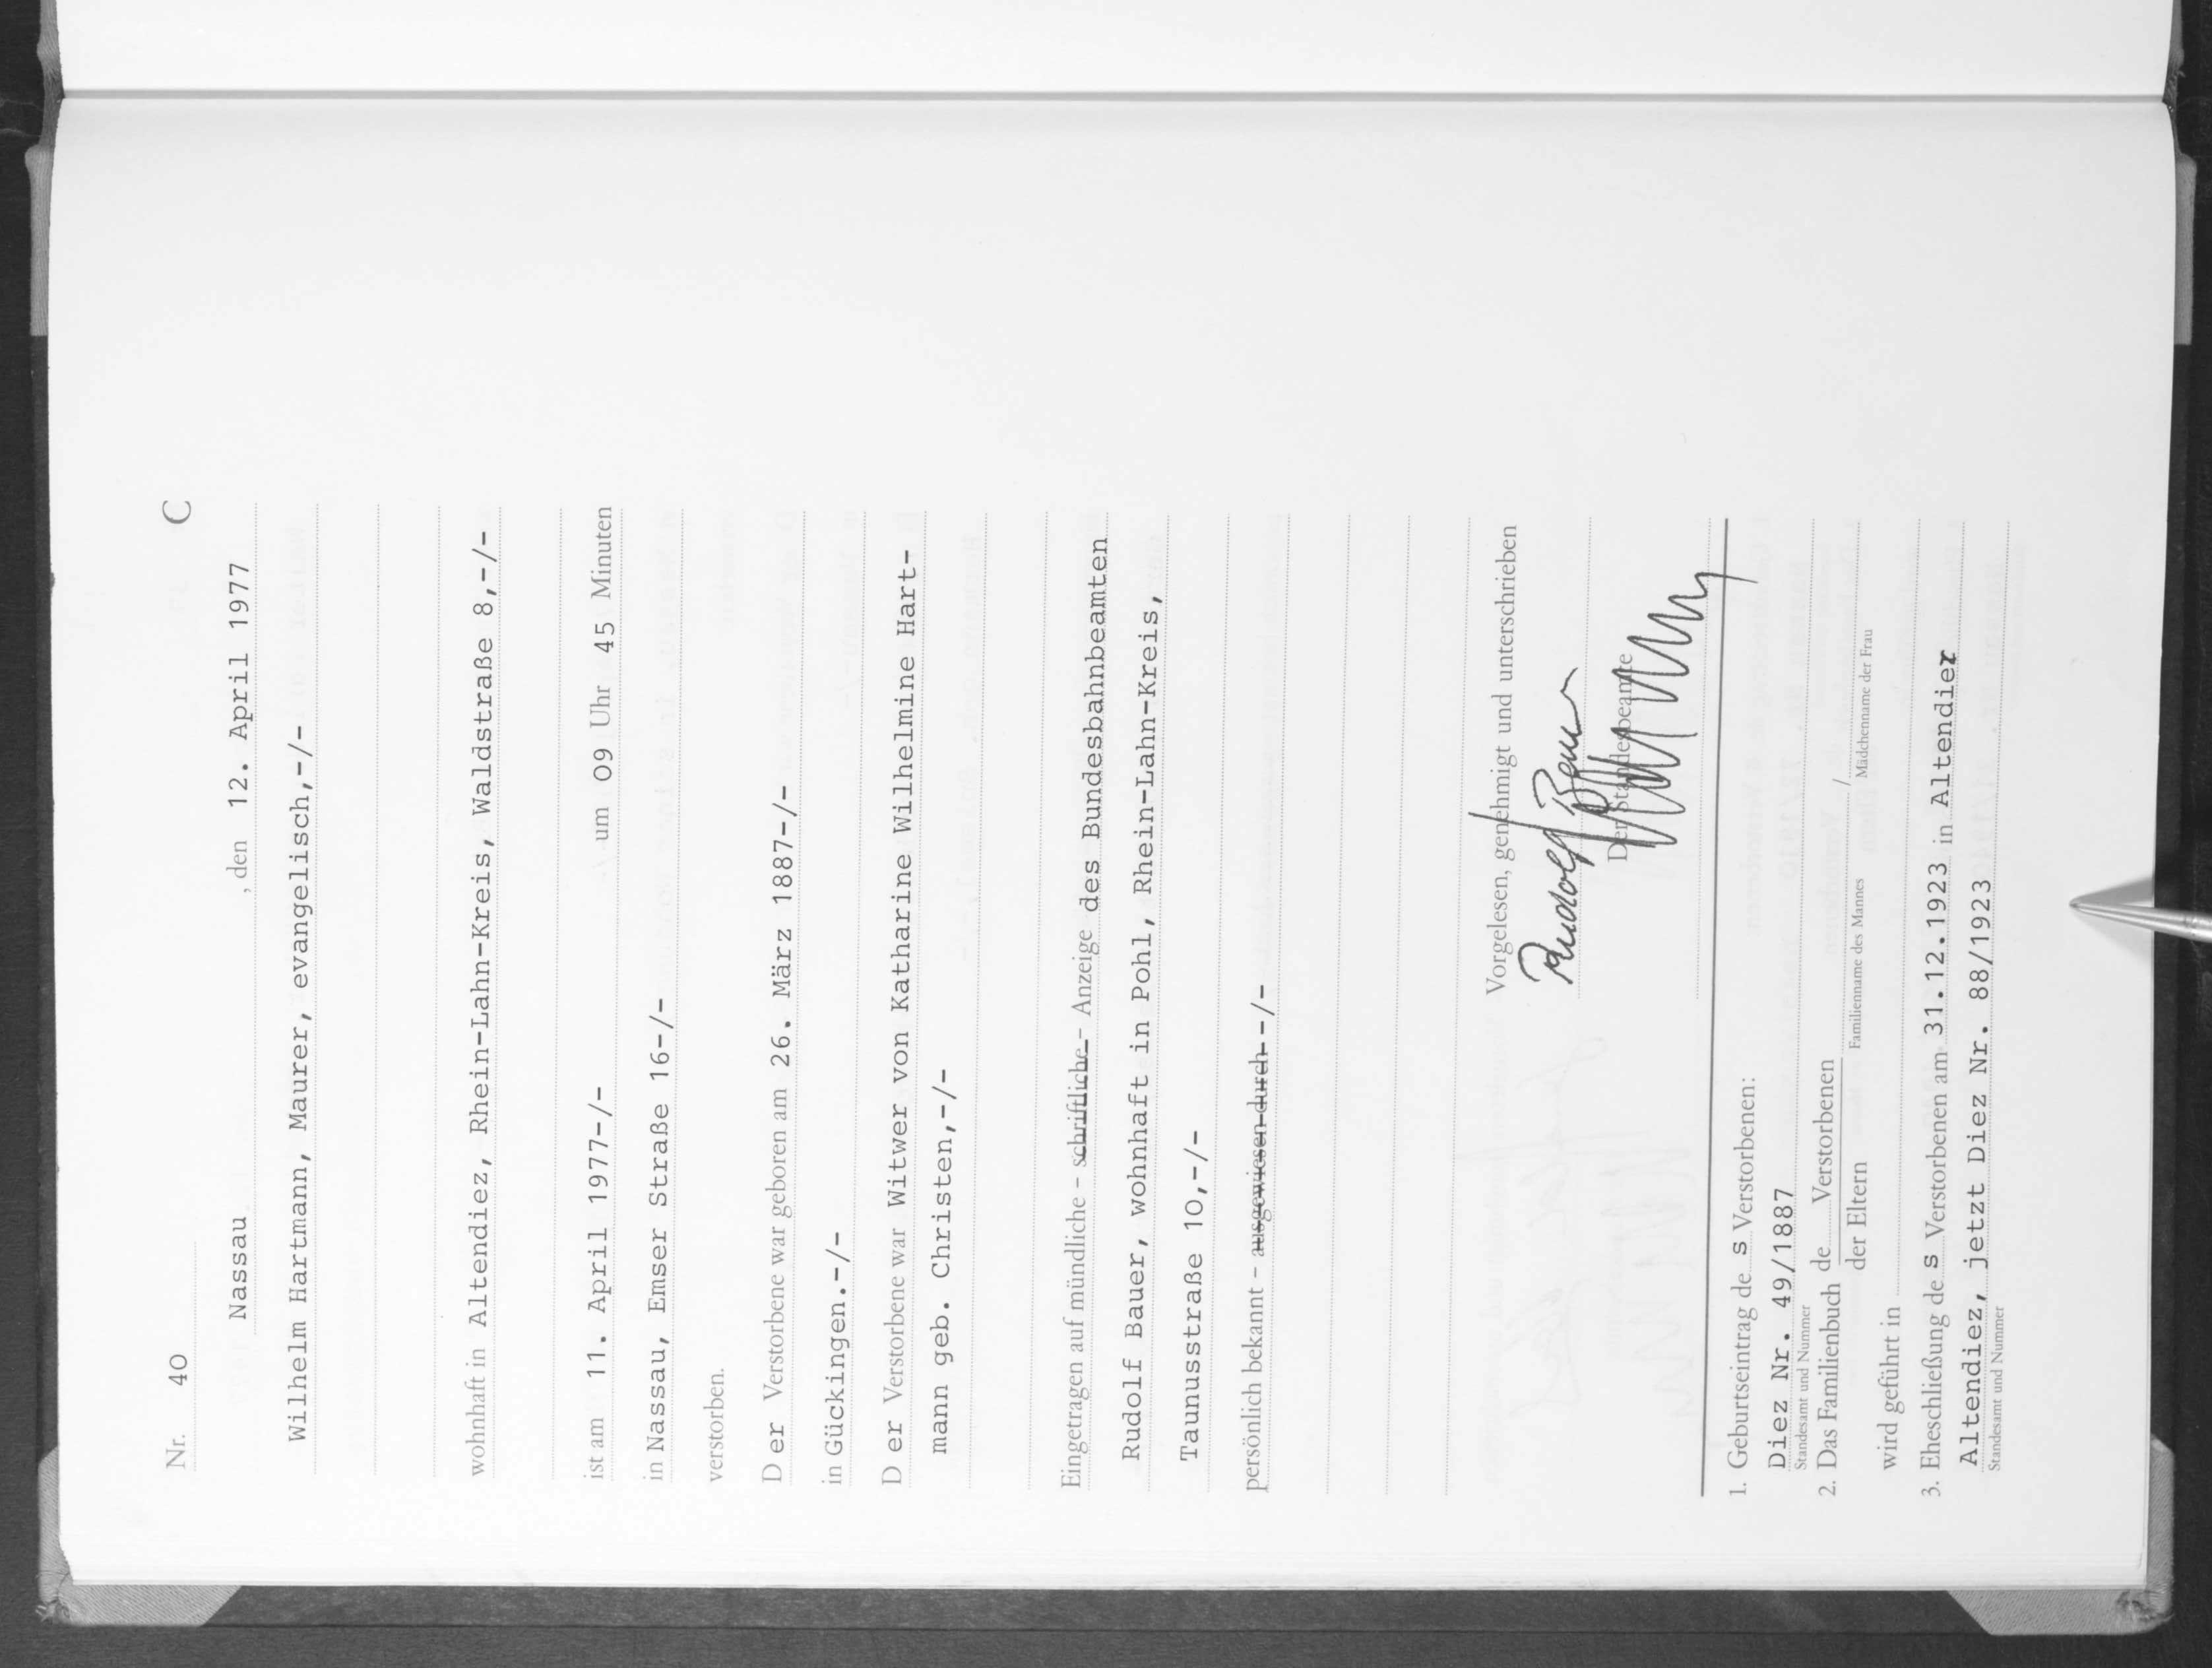 Nr. 40 C
Nassau , den 12. April 1977
Wilhelm Hartmann, Maurer, evangelisch,-/-
wohnhaft in Altendiez, Rhein-Lahn-Kreis, Waldstraße 8,-/-
ist am 11. April 1977-/- um 09 Uhr 45 Minuten
in Nassau, Emser Straße 16-/-
verstorben.
D er Verstorbene war geboren am 26. März 1887-/-
in Gückingen.-/-
D er Verstorbene war Witwer von Katharine Wilhelmine Hart-
mann geb. Christen,-/-
Eingetragen auf mündliche - schriftliche - Anzeige des Bundesbahnbeamten
Rudolf Bauer, wohnhaft in Pohl, Rhein-Lahn-Kreis,
Taunusstraße 10,-/-
persönlich bekannt - ausgewiesen durch -/-
Vorgelesen, genehmigt und unterschrieben
Rudolf Bauer
Der Standesbeamte
1. Geburtseintrag de s Verstorbenen:
Diez Nr. 49/1887
Standesamt und Nummer
2. Das Familienbuch de Verstorbenen /
der Eltern Familienname des Mannes Mädchenname der Frau
wird geführt in
3. Eheschließung de s Verstorbenen am 31.12.1923 in Altendier
Altendiez, jetzt Diez Nr. 88/1923
Standesamt und Nummer